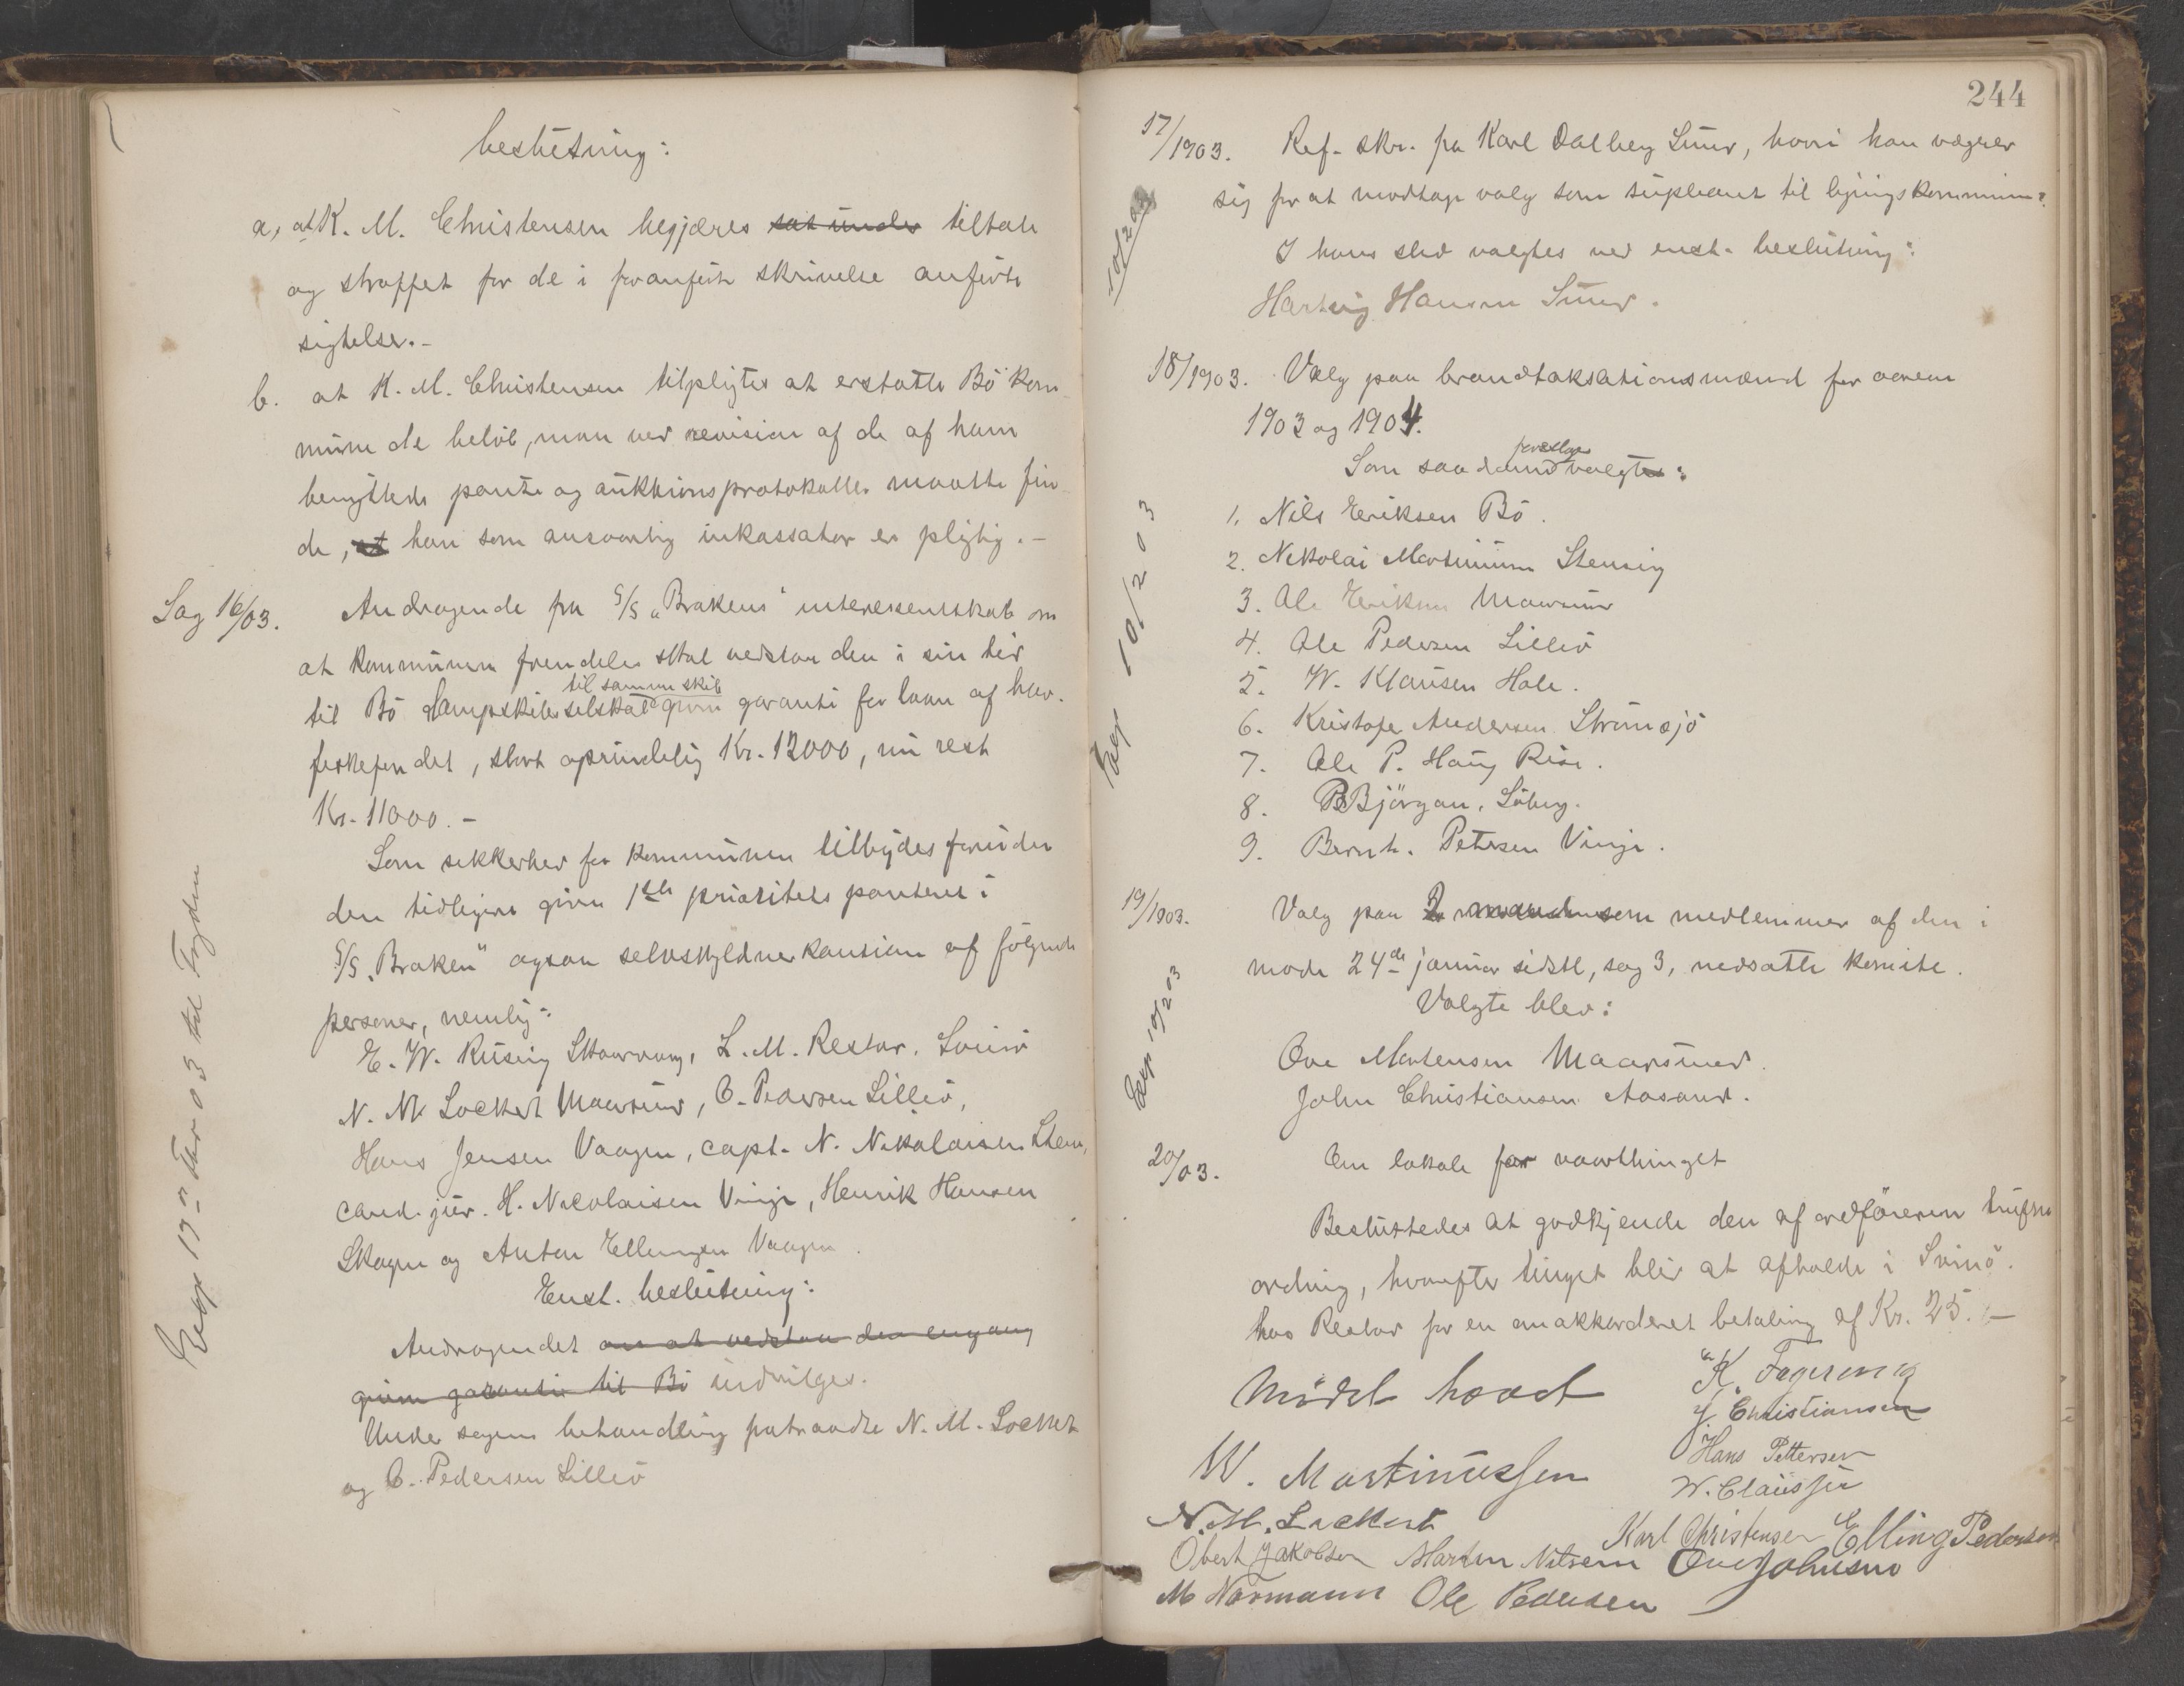 beslutning:
a, at K. M. Christensen begjæres sat under tiltale
og straffet for de i foranførte skrivelse anførte
sigtelser.-
b. at K. M. Christensen tilpligtes at erstatte Bö kom-
mune de belöb, man ved revision af de af ham
benyttede pante og auktionsprotokoller maatte fin-
de, at han som ansvarlig inkassator er pligtig.-
Sag 16/03. Andragende fra S/S "Brakens" interessentskab om
at kommunen fremdeles skal vedstaa den i sin tid
til samme skib
til Bö dampskibsselskab given garanti for laan af hav-
fiskefondet, stort oprindelig Kr. 12000, nu rest
Kr. 11000.-
Som sikkerhed for kommunen tilbydes foruden
den tidligere givne 1ste prioritets panteret i
S/S "Braken" ogsaa selvskyldnerkaution af følgende
personer, nemlig:
E. W. Rusing Skaarvaag, L. M. Restor. Svinö
N. M Lockert Maarsund, O. Pedersen Lillevö,
Hans Jensen Vaagen, capt. N. Nikolaisen Steen,
cand. jur. H. Nicolaisen Vinje, Henrik Hansen
Skagen og Anton Ellingsen Vaagen.
Enst. beslutning:
Andragendet om at vedstaa den engang
given garanti til Bö indvilges.
Under sagens behandling fratraadte N. M. Lockert
og O. Pedersen Lillevö
Exp 17de Febr 03 til Fogden
244
17/1903. Ref. skr. fra Karl Dalberg Sund, hvori han vægrer
sig for at modtage valg som supleant til ligningskommisn.
I hans sted valgtes ved enst. beslutning:
Hartvig Hansen Sund.
10/2 03
18/1903. Valg paa brandtaksationsmænd for aarene
1903 og 1904.
foreslaaes
Som saadanne valgtes:
1. Nils Eriksen Bö.
2. Nikolai Martinussen Stensvig
3. Ole Eriksen Maarsund
4. Ole Pedersen Lillevö
5. W. Klausen Hole.
6. Kristofer Andersen Straumsjö
7. Ole P. Haug Rise.
8. P Björgan, Söberg.
9. Bernt. Petersen Vinje.
Exp 10/2 03
19/1903. Valg paa 2 mænd som medlemmer af den i
møde 24de januar sidstl, sag 3, nedsatte komite.
Valgte blev:
Ove Martensen Maarsund.
John Christiansen Aasand.
Exp 10/2 03
20/03. Om lokale for vaarthinget
Besluttedes at godkjende den af ordföreren trufne
ordning, hvorefter tinget blir at afholde i Svinö.
hos Restor for en anakkorderet betaling af Kr. 25.-
Mödet hævet
K. Fagereng
J. Christiansen
W. Martinussen
Hans Pettersen
W. Claussen
N. M. Lockert
Karl Christensen Elling Pedersen
Obert Jakobsen Marten Nilsen Ove Johnsen
M Normann Ole Pedersen